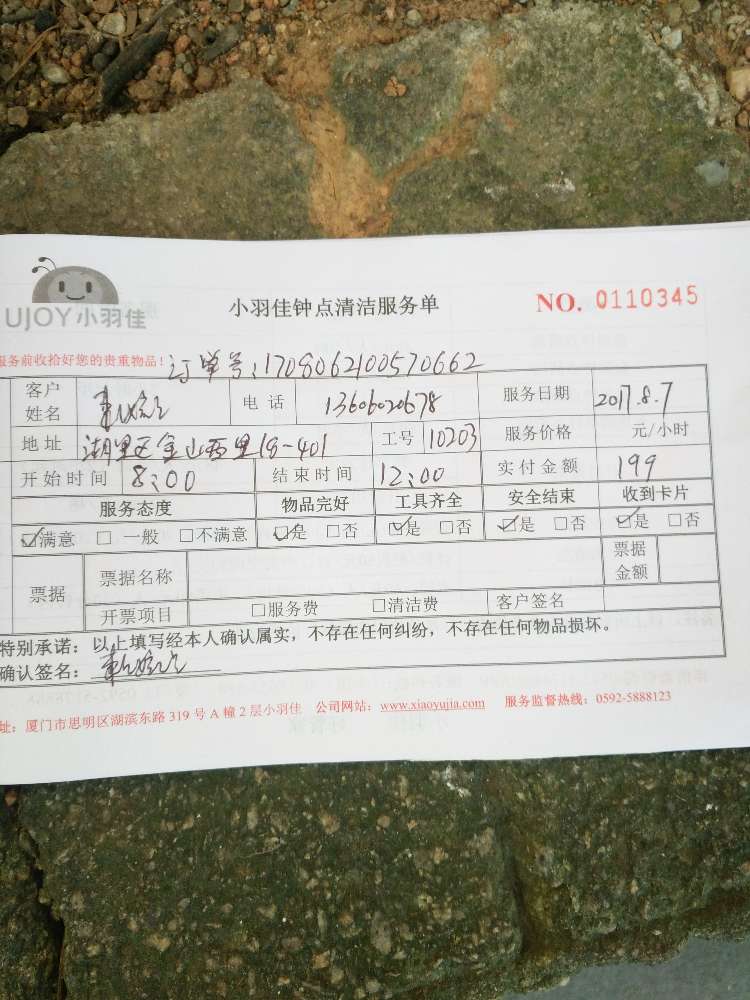 UJOY小羽佳
小羽佳钟点清洁服务单
NO. 0110345
服务前收拾好您的贵重物品! 订单号:1708062100570662
客户姓名 电话 13606020678 服务日期 2017.8.7
地址 湖里区金山西里18-401 工号 10203 服务价格 元/小时
开始时间 8:00 结束时间 12:00 实付金额 199
服务态度 物品完好 工具齐全 安全结束 收到卡片
☑满意 □一般 □不满意 ☑是 □否 ☑是 □否 ☑是 □否 ☑是 □否
票据 票据名称 票据金额
开票项目 □服务费 □清洁费 客户签名
特别承诺:以上填写经本人确认属实,不存在任何纠纷,不存在任何物品损坏。
确认签名:
址:厦门市思明区湖滨东路 319 号 A 幢 2 层小羽佳 公司网站:www.xiaoyujia.com 服务监督热线:0592-5888123